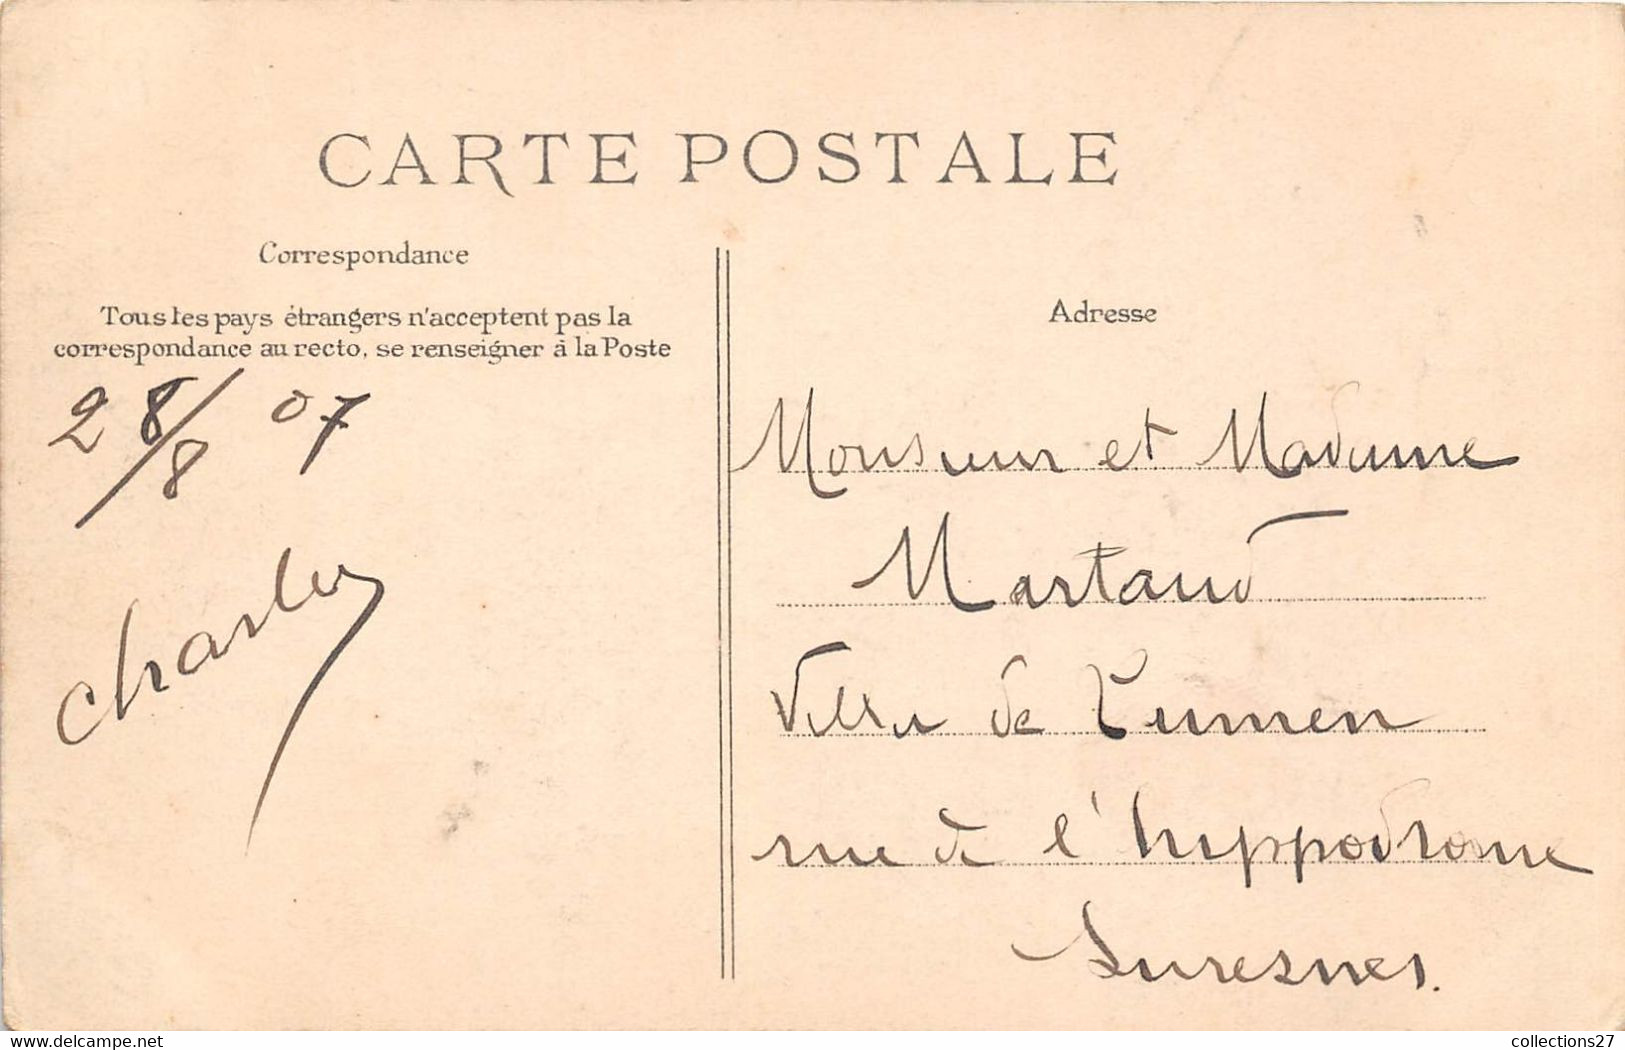 CARTE POSTALE
Correspondance
Tous les pays étrangers n'acceptent pas la
correspondance au recto, se renseigner à la Poste
28/8 07
Charles
Adresse
Monsieur et Madame
Martaud
Villa de
rue de l'hippodrome
Suresnes.
www.delcampe.net
collections27